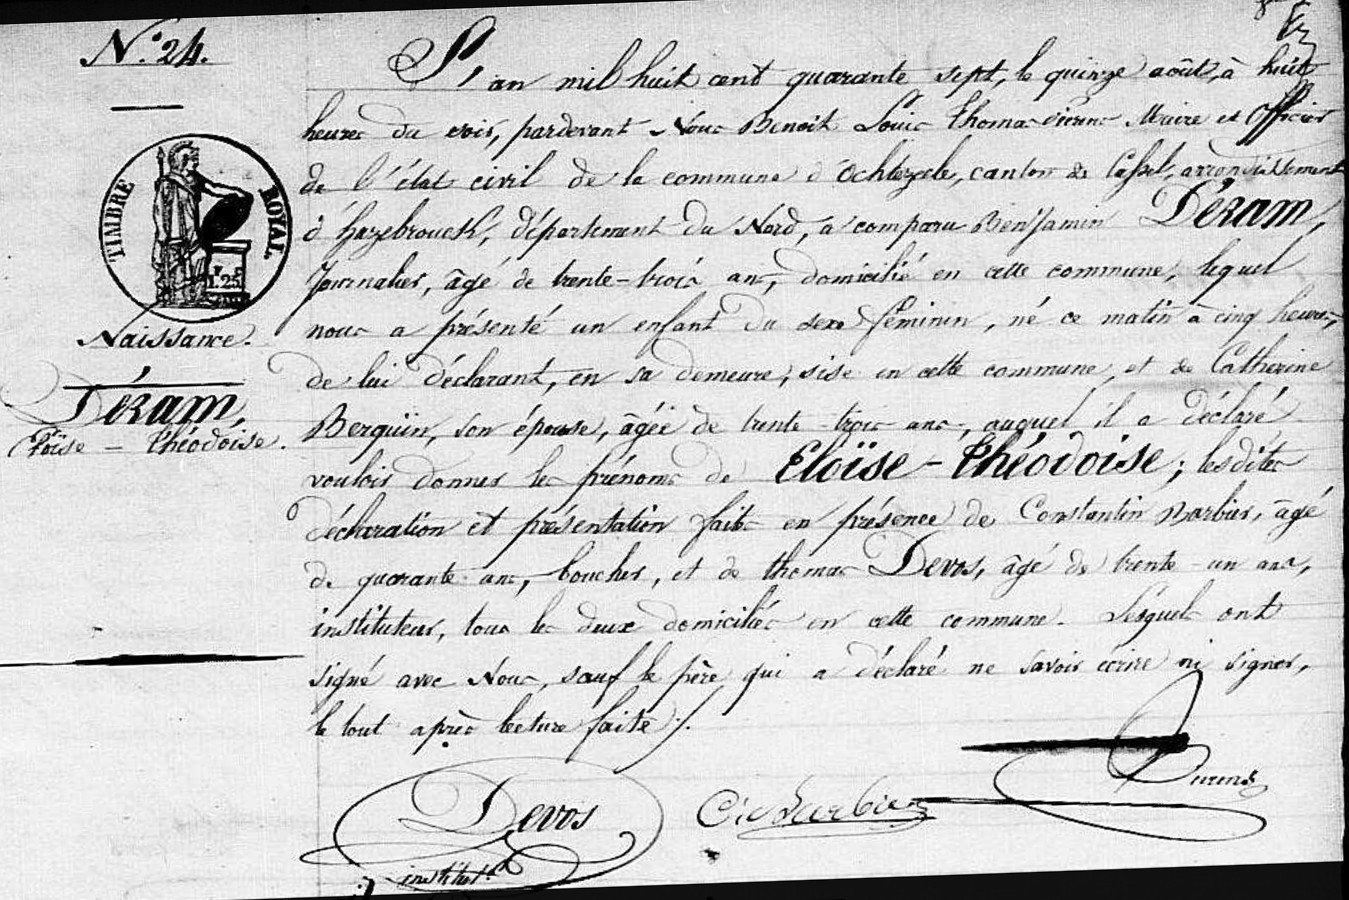 N.° 24.
TIMBRE ROYAL.
F. 1.25
Naissance.
Dézam,
Eloïse - Théodoise.
L'an mil huit cent quarante sept, le quinze août, à huit
heures du soir, pardevant Nous Benoit Louis Thomas Maire et Officier
de l'état civil de la commune d'Ochtezeele, canton de Cassel, arrondissement
d'hazebrouck, département du Nord, a comparu Benjamin Dézam,
Journalier, âgé de trente-trois ans, domicilié en cette commune, lequel
nous a présenté un enfant du sexe féminin, né ce matin à cinq heures,
de lui déclarant, en sa demeure, sise en cette commune, et de Catherine
Berquin, son épouse, âgée de trente-trois ans, auquel il a déclaré
vouloir donner les prénoms de Eloïse - Théodoise; lesdites
déclaration et présentation faites en présence de Constantin Barbier, âgé
de quarante ans, boucher, et de thomas Devos, âgé de trente-un ans,
instituteur, tous les deux domiciliés en cette commune. Lesquels ont
signé avec Nous, sauf le père qui a déclaré ne savoir écrire ni signer,
le tout après lecture faite ./.
Devos
institut.r